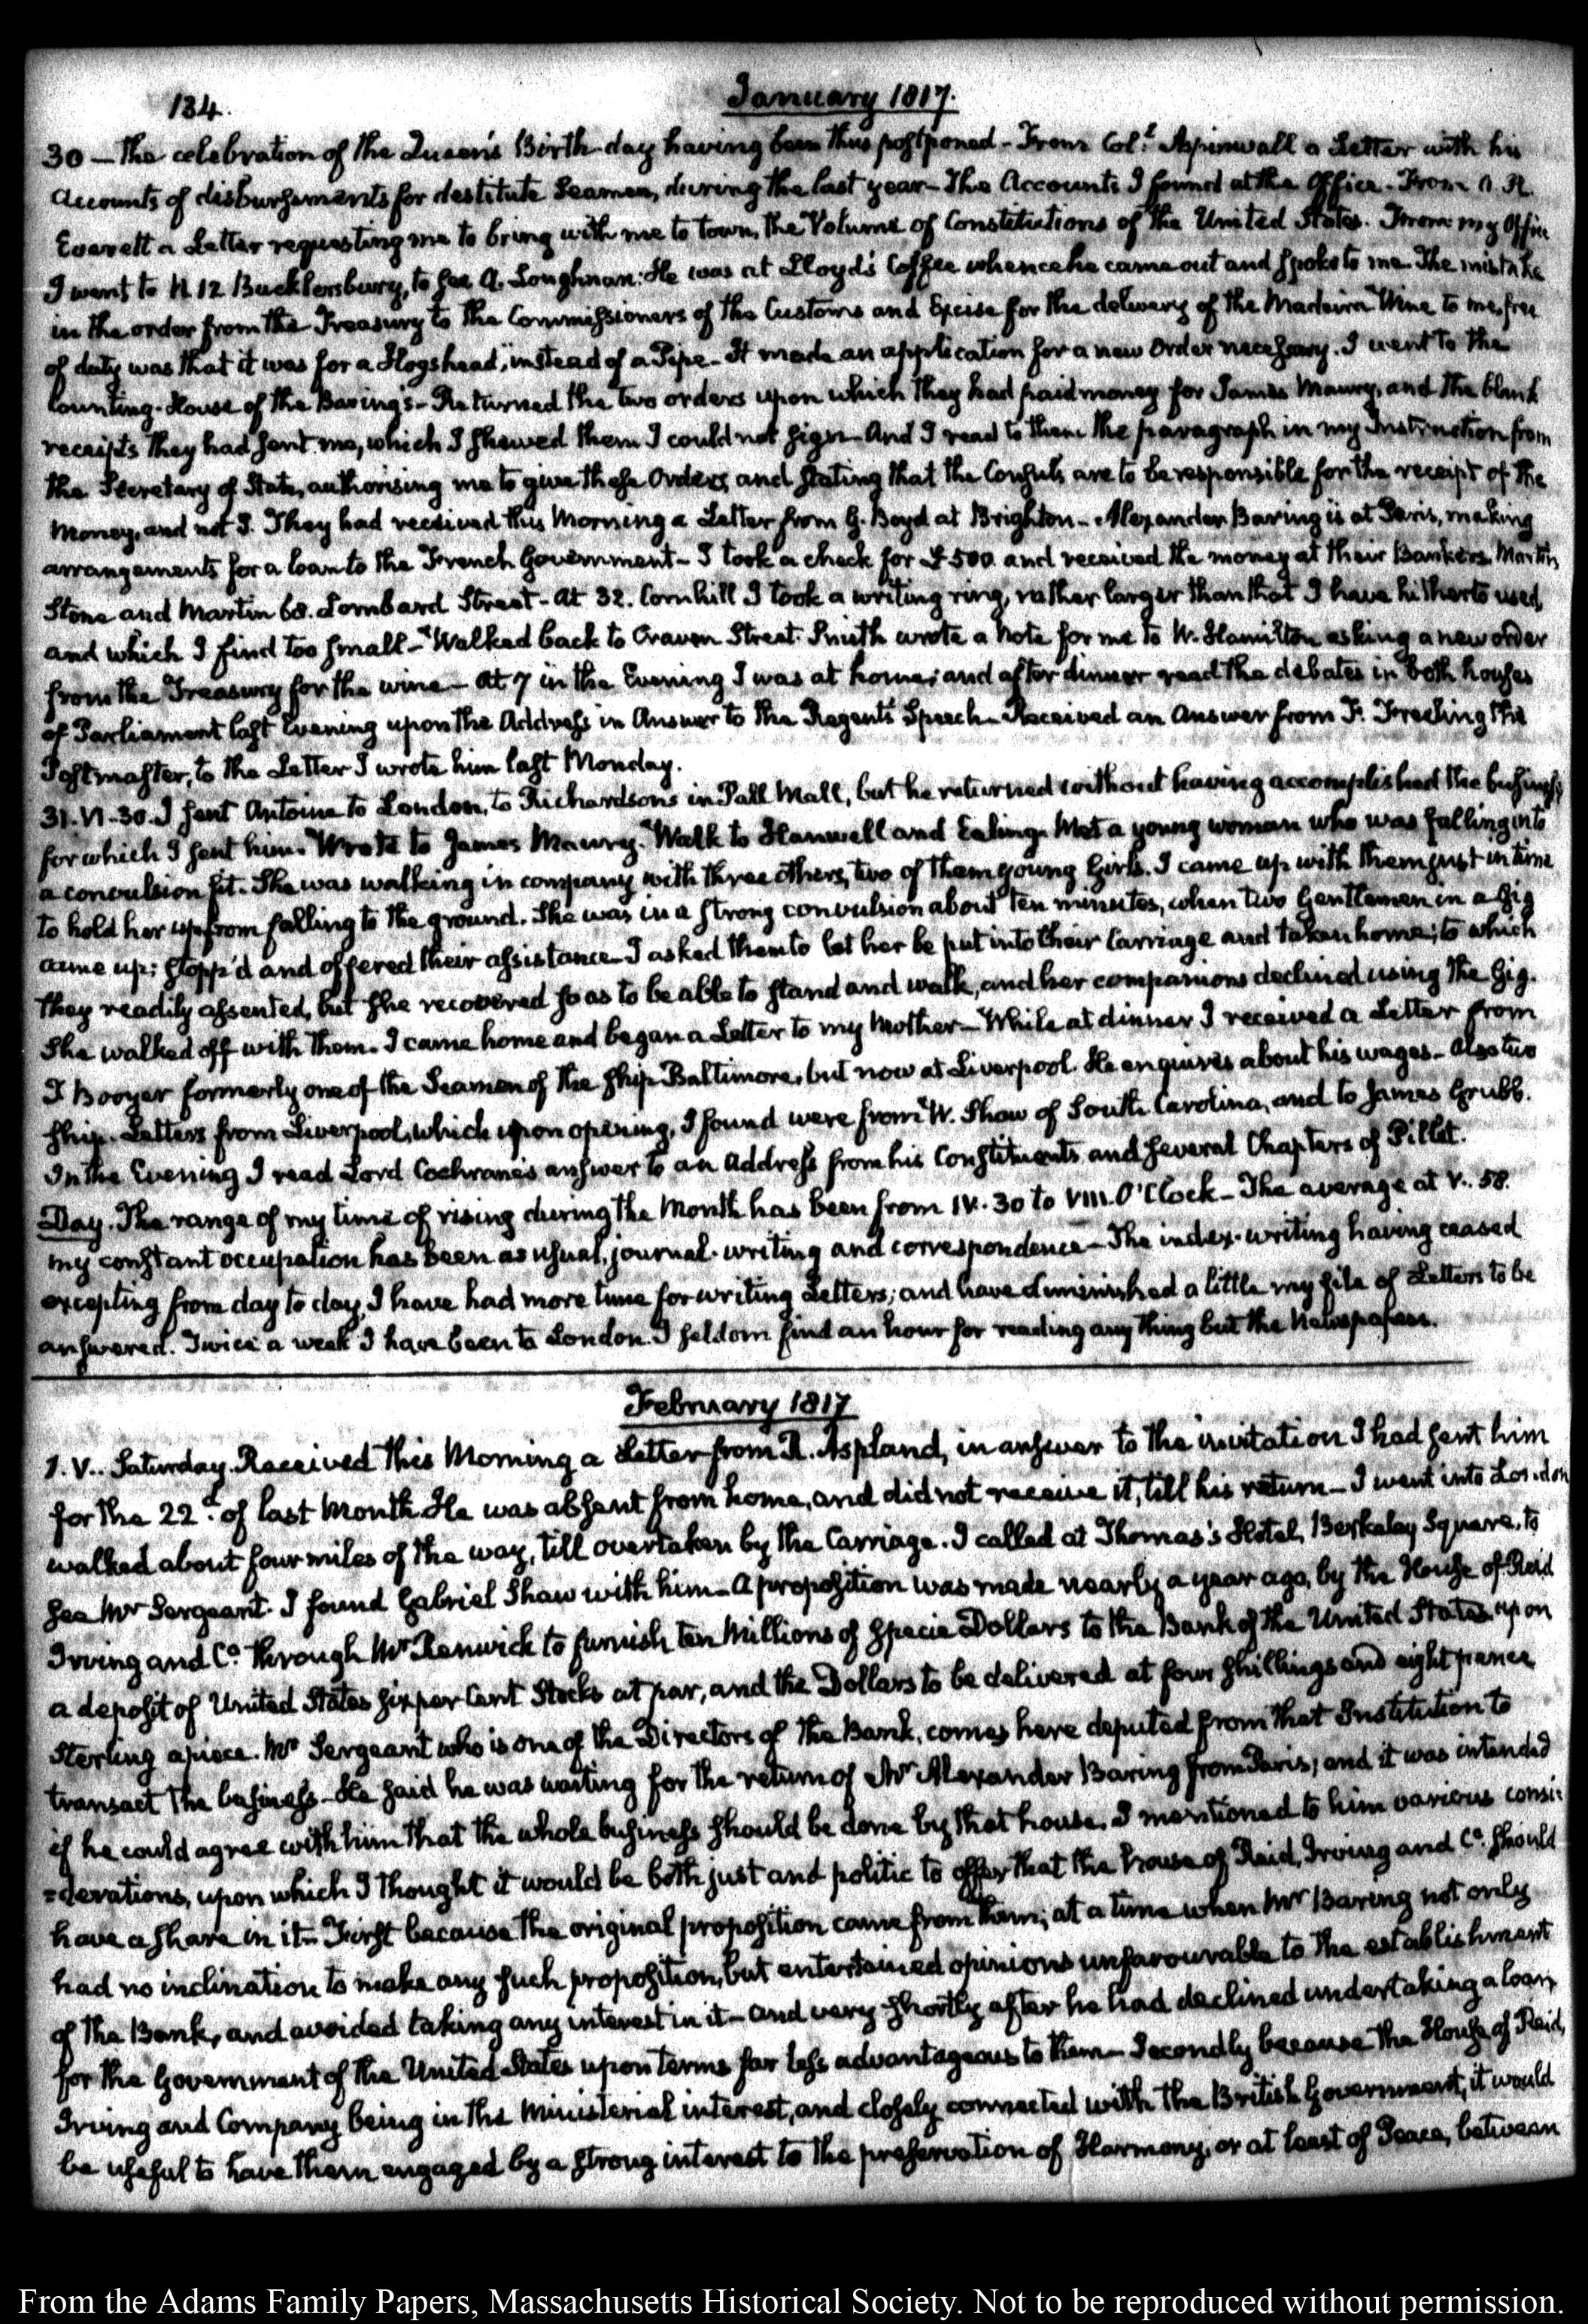 134.
January 1817.
30 — The celebration of the Queen's Birth-day having been thus postponed - From Col.l Aspinwall a Letter with his
Accounts of disbursements for destitute Seamen, during the last year - The Accounts I found at the Office. From A. H.
Everett a Letter requesting me to bring with me to town, the Volume of Constitutions of the United States. From my Office
I went to N. 12 Bucklersbury, to see A. Loughnan: He was at Lloyd's Coffee whence he came out and spoke to me. The mistake
in the order from the Treasury to the Commissioners of the Customs and Excise for the delivery of the Madeira Wine to me, free
of duty was that it was for a Hogshead, instead of a Pipe - It made an application for a new Order necessary. I went to the
Counting-House of the Baring's - Returned the two orders upon which they had paid money for James Maury, and the blank
receipts they had sent me, which I shewed them I could not sign - And I read to them the paragraph in my Instruction from
the Secretary of State, authorising me to give these Orders, and stating that the Consuls are to be responsible for the receipt of the
Money, and not I. They had received this Morning a Letter from G. Boyd at Brighton - Alexander Baring is at Paris, making
arrangements for a loan to the French Government - I took a check for £500 and received the money at their Bankers Martin
Stone and Martin 68. Lombard Street - At 32. Cornhill I took a writing ring, rather larger than that I have hitherto used,
and which I find too small - Walked back to Craven Street. Smith wrote a Note for me to W. Hamilton asking a new order
from the Treasury for the wine - At 7 in the Evening I was at home; and after dinner read the debates in both houses
of Parliament last Evening upon the Address in Answer to the Regent's Speech - Received an Answer from F. Freeling the
Postmaster, to the Letter I wrote him last Monday.
31. VI.30. I sent Antoine to London, to Richardsons in Pall Mall, but he returned without having accomplished the business
for which I sent him. Wrote to James Maury. Walk to Hanwell and Ealing. Met a young woman who was falling into
a convulsion fit. She was walking in company with three others, two of them young Girls. I came up with them just in time
to hold her up from falling to the ground. She was in a strong convulsion about ten minutes, when two Gentlemen in a Gig
came up; stopp'd and offered their assistance - I asked them to let her be put into their Carriage and taken home; to which
they readily assented, but she recovered so as to be able to stand and walk, and her companions declined using the Gig.
She walked off with them. I came home and began a Letter to my Mother - While at dinner I received a Letter from
I Booyer formerly one of the Seamen of the ship Baltimore, but now at Liverpool. He enquires about his wages - Also two
ship-Letters from Liverpool, which upon opening, I found were from W. Shaw of South Carolina, and to James Grubb.
In the Evening I read Lord Cochrane's answer to an Address from his Constituents and several Chapters of Pillet.
Day. The range of my time of rising during the Month has been from IV.30 to VIII. O'Clock - The average at V..58.
my constant occupation has been as usual, journal-writing and correspondence - The index-writing having ceased
excepting from day to day, I have had more time for writing Letters; and have diminished a little my file of Letters to be
answered. Twice a week I have been to London. I seldom find an hour for reading any thing but the Newspapers.
February 1817
1. V.. Saturday. Received this Morning a Letter from R. Aspland, in answer to the invitation I had sent him
for the 22.d of last Month. He was absent from home, and did not receive it, till his return - I went into London
walked about four miles of the way, till overtaken by the Carriage. I called at Thomas's Hotel, Berkeley Square, to
see Mr Sergeant. I found Gabriel Shaw with him - A proposition was made nearly a year ago, by the House of Reid
Irving and Co. through Mr Renwick to furnish ten Millions of specie Dollars to the Bank of the United States, upon
a deposit of United States six per Cent Stocks at par, and the Dollars to be delivered at four shillings and eight pence
Sterling apiece. Mr Sergeant who is one of the Directors of the Bank, comes here deputed from that Institution to
transact the business - He said he was waiting for the return of Mr Alexander Baring from Paris; and it was intended
if he could agree with him that the whole business should be done by that house. I mentioned to him various consi=
=derations, upon which I thought it would be both just and politic to offer that the house of Reid, Irving and Co. should
have a share in it - First because the original proposition came from them; at a time when Mr Baring not only
had no inclination to make any such proposition, but entertained opinions unfavourable to the establishment
of the Bank, and avoided taking any interest in it - and very shortly after he had declined undertaking a loan
for the Government of the United States upon terms far less advantageous to them - Secondly because the House of Reid,
Irving and Company being in the Ministerial interest, and closely connected with the British Government, it would
be useful to have them engaged by a strong interest to the preservation of Harmony, or at least of Peace, between
From the Adams Family Papers, Massachusetts Historical Society. Not to be reproduced without permission.